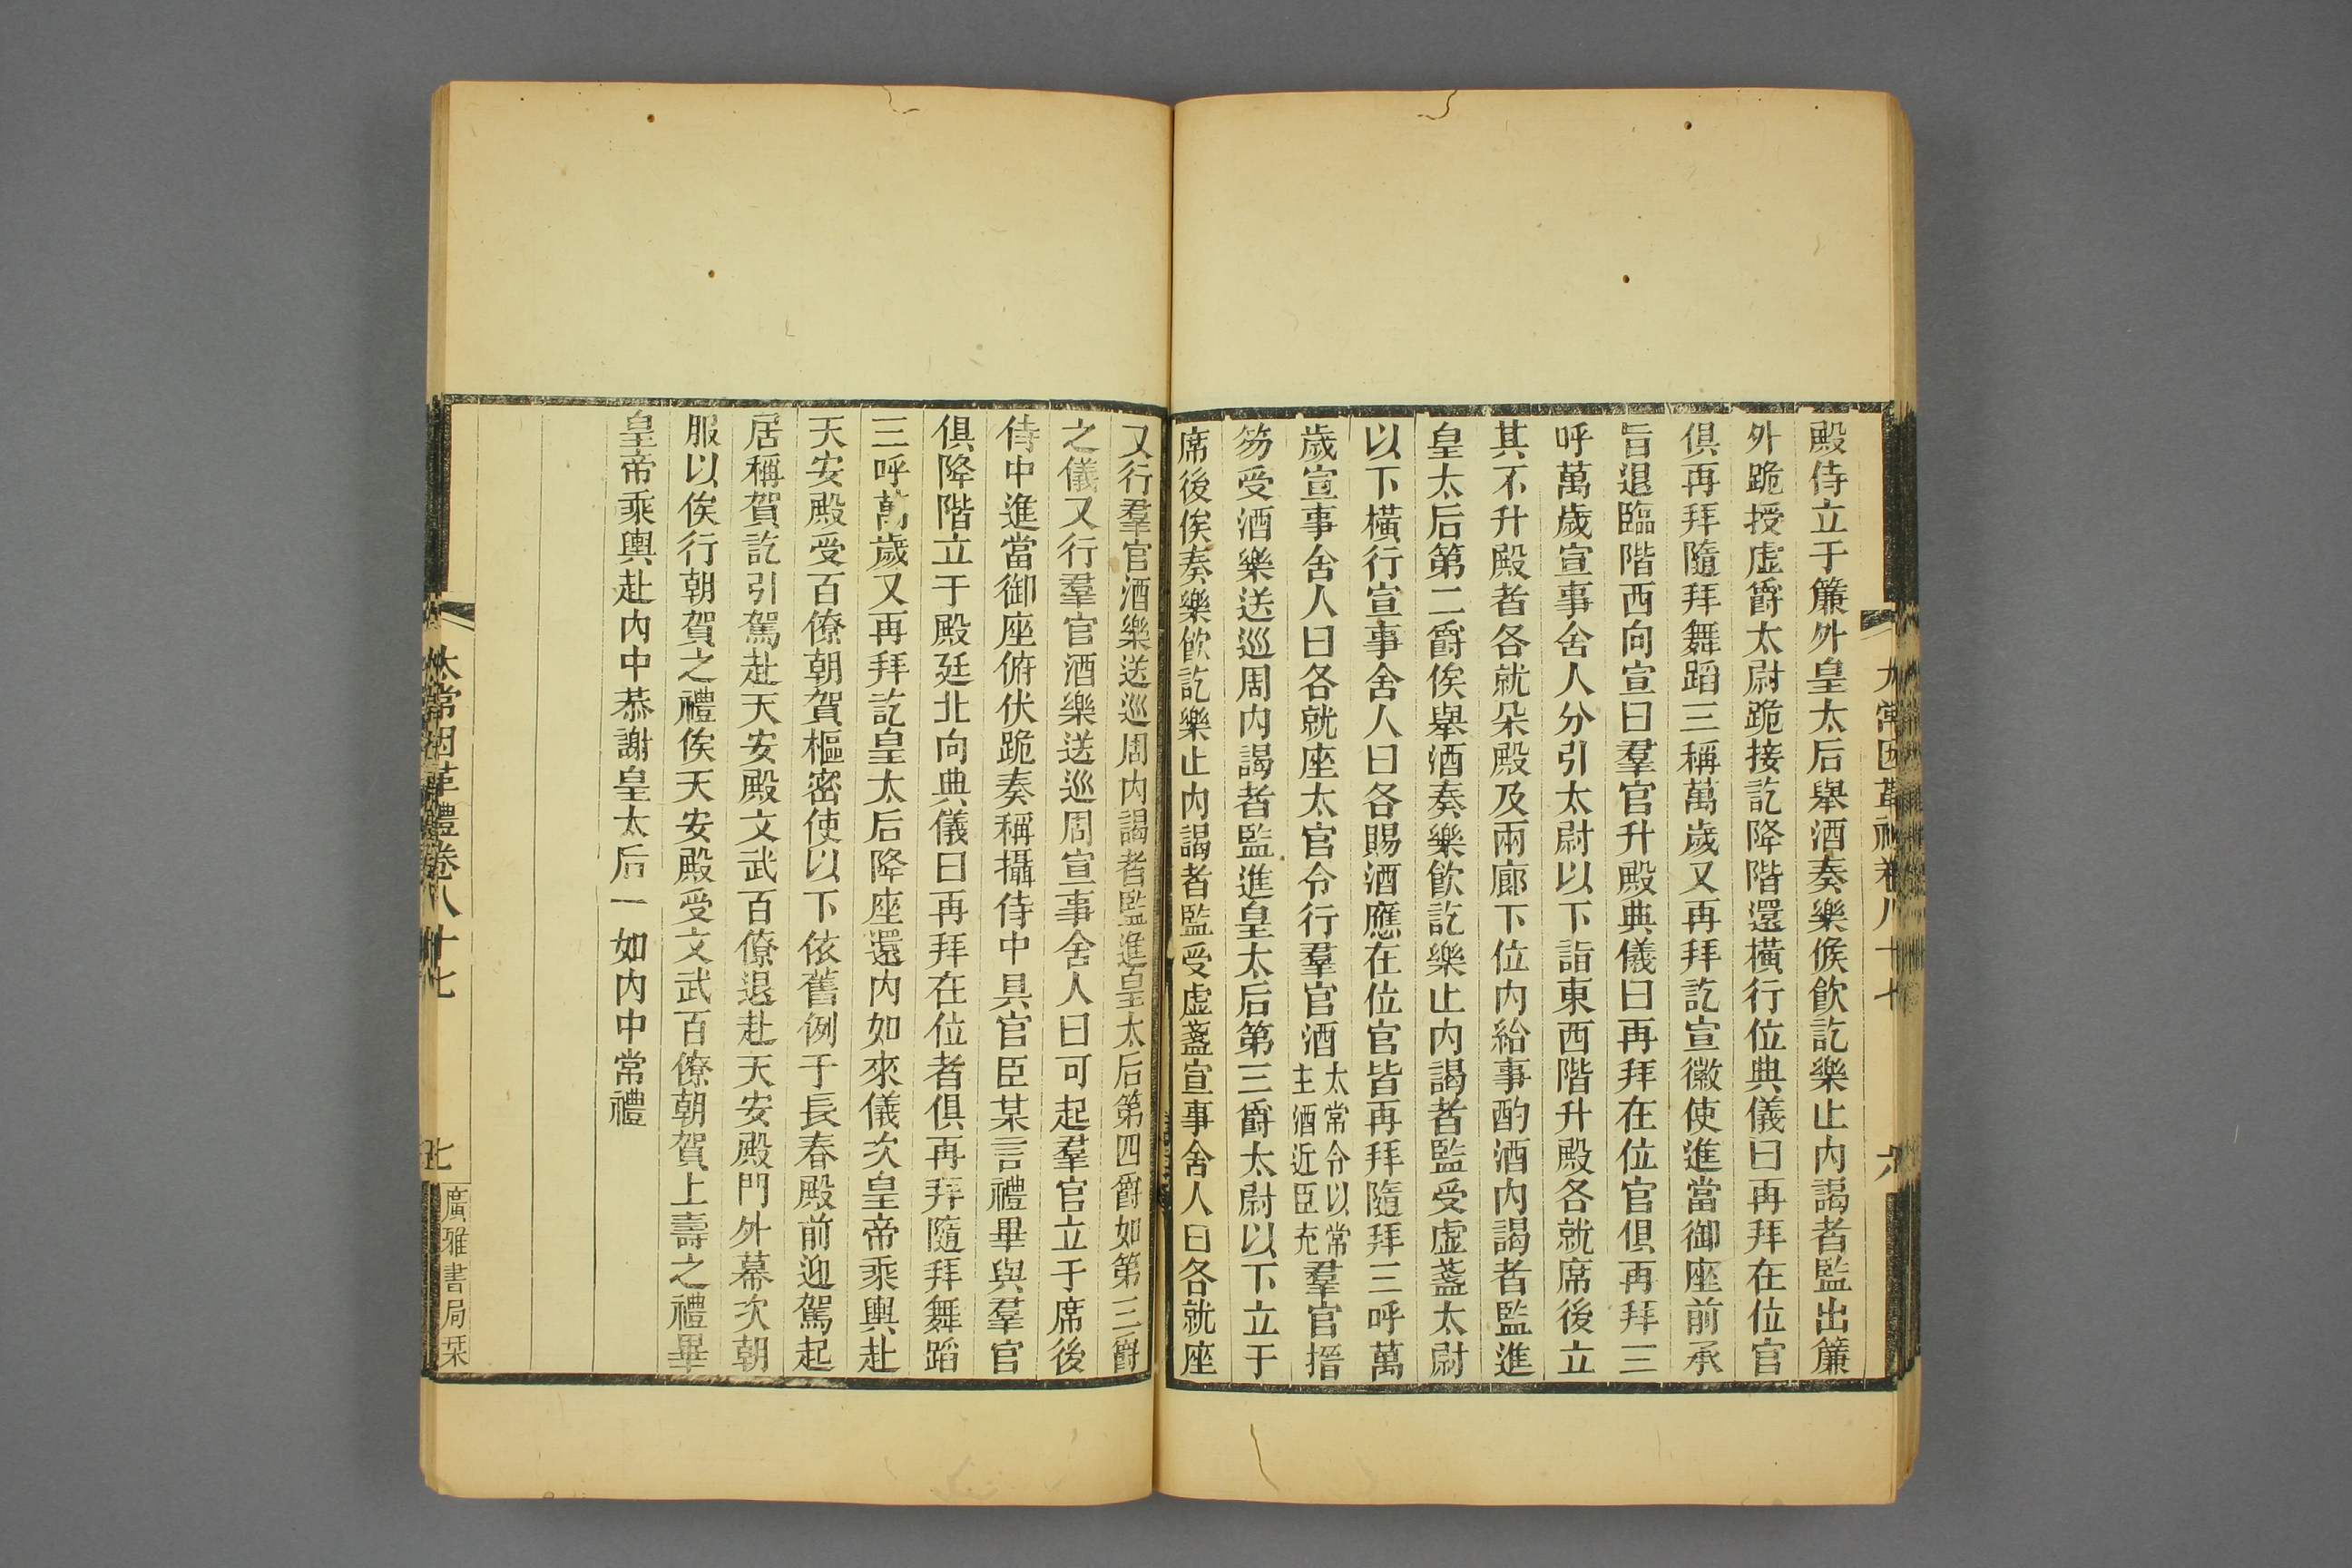 太常因革禮卷八十七
六
殿侍立于簾外皇太后舉酒奏樂候飮訖樂止内謁者監出簾
外跪授虛爵太尉跪接訖降階還橫行位典儀曰再拜在位官
俱再拜隨拜舞蹈三稱萬歲又再拜訖宣徽使進當御座前承
旨退臨階西向宣曰羣官升殿典儀曰再拜在位官俱再拜三
呼萬歲宣事舍人分引太尉以下詣東西階升殿各就席後立
其不升殿者各就朵殿及兩廊下位内給事酌酒内謁者監進
皇太后第二爵俟舉酒奏樂飮訖樂止内謁者監受虛盞太尉
以下橫行宣事舍人曰各賜酒應在位官皆再拜隨拜三呼萬
歲宣事舍人曰各就座太官令行羣官酒太常令以常主酒近臣充羣官搢
笏受酒樂送巡周内謁者監進皇太后第三爵太尉以下立于
席後俟奏樂飮訖樂止内謁者監受虛盞宣事舍人曰各就座
又行羣官酒樂送巡周内謁者監進皇太后第四爵如第三爵
之儀又行羣官酒樂送巡周宣事舍人曰可起羣官立于席後
侍中進當御座俯伏跪奏稱攝侍中具官臣某言禮畢與羣官
俱降階立于殿廷北向典儀曰再拜在位者俱再拜隨拜舞蹈
三呼萬歲又再拜訖皇太后降座還内如來儀次皇帝乘輿赴
天安殿受百僚朝賀樞密使以下依舊例于長春殿前迎駕起
居稱賀訖引駕赴天安殿文武百僚退赴天安殿門外幕次朝
服以俟行朝賀之禮俟天安殿受文武百僚朝賀上壽之禮畢
皇帝乘輿赴内中恭謝皇太后一如内中常禮
太常因革禮卷八十七
七
廣雅書局栞